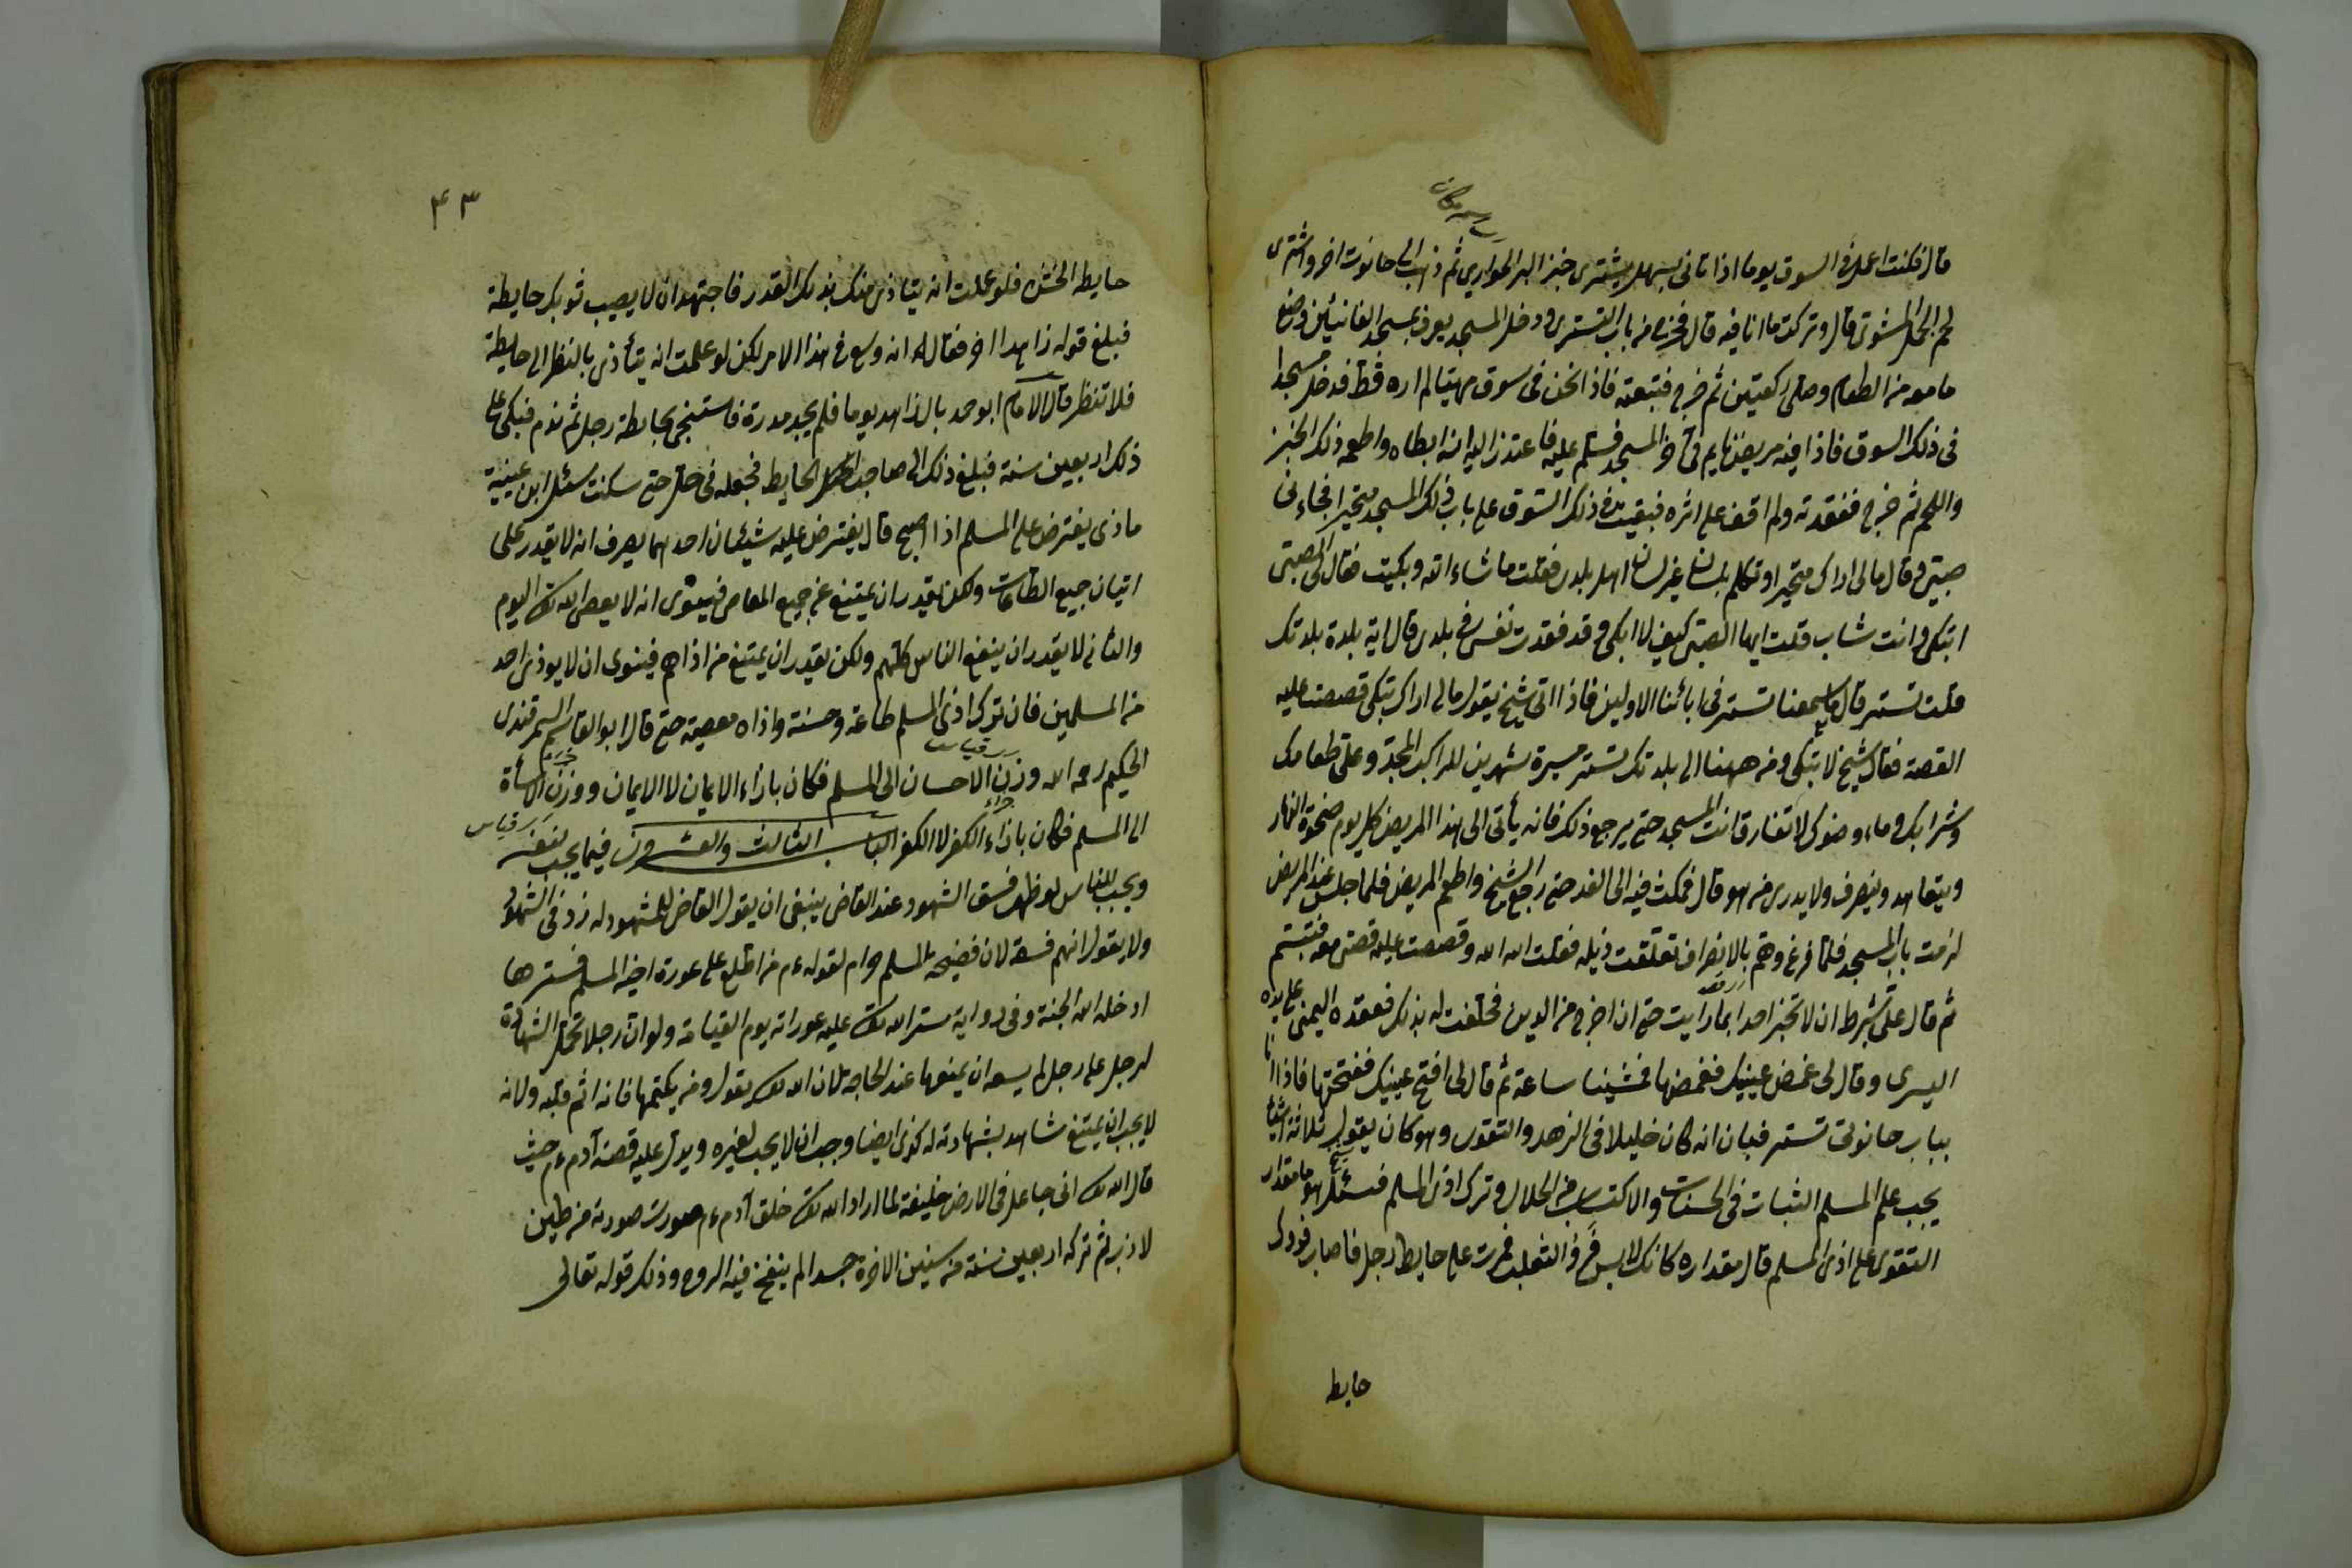 اسم مكان
قال فكنت اعمل في السوق يوما اذا تانى سهل يشترى خبز البر الحوارى ثم ذهب الى حانوت اخر واشترى
لحم الحمل المشوى قال وتركت ما انا فيه قال فخرج من باب التسترى ودخل المسجد يعرف بمسجد وضع
ما معه من الطعام وصلى ركعتين ثم خرج فتبعته فاذا نحن فى سوق لم اره قط فدخل مسجدا
فى ذلك السوق فاذا فيه مريض نايم فى المسجد فسلم عليه فاعتذر اليه انه ابطاه واطعمه ذلك الخبز
واللحم ثم خرج ففقدته ولم اقف على اثره فبقيت في ذلك السوق على باب ذلك المسجد متحيرا فجاءنى
صبى وقال مالى اراك متحيرا وتكلم بلسان غير لسان اهل بلدى فقلت ما شاء الله وبكيت فقال لى الصبى
اتبكى وانت شاب قلت ايها الصبى كيف لا ابكى وقد فقدت نفسى في بلدى قال اية بلدة بلدتك
قلت تستر قال ما سمعنا تستر فى ابائنا الاولين فاذا اتى شيخ يقول مالى اراك تبكى قصصت عليه
القصة فقال شيخ لا تبكى ومن ههنا الى بلدتك تستر مسيرة شهرين للراكب المجد وعلى طعامك
وشرابك وماء وضوئك لا تفارق انت المسجد حتى يرجع ذلك فانه يأتى الى هذا المريض كل يوم ضحوة النهار
ويتعاهد وينصرف ولا يدرى من هو قال فمكثت فيه الى الغد حتى راجع الشيخ واطعم المريض فلما جلس عند المريض
لزمت باب المسجد فلما فرغ وهم بالانصراف تعلقت ذيله فقلت الله الله وقصصت عليه قصتى معه فتبسم
ثم قال على بشرط ان لا تخبر احدا بما رايت حتى ان اخرج من الدين فحلفت له بذلك فعقده اليمنى على يده
اليسرى وقال لى غمض عينيك فغمضها فمشينا ساعة ثم قال لى افتح عينيك ففتحتها فاذا انا
بباب حانوتى تستر فبان انه كان خليلا فى الزهد والتقوى وهو كان يقول ثلاثة اشياء
يجب على المسلم الثبات فى الحسنات والاكتساب من الحلال وترك اذى المسلم فسئل سهل ما مقدار
التقوى على اذى المسلم قال مقداره كانك لابس فرو الثعلب فمرت على حايط رجل فاصاب فروك
حايط
۴۳
حايطه الخشن فلو علمت انه يتاذى منك بذلك القدر فاجتهد ان لا يصيب ثوبك حايطه
فبلغ قوله زاهدا اخر فقال له انه وسع فى هذا الامر لكن لو علمت انه يتأذى بالنظر الى حايطه
فلا تنظر قال الامام ابو حمد بال زاهد يوما فلم يجد مدرة فاستنجى بحايطة رجل ثم ندم فبكى على
ذلك اربعين سنة فبلغ ذلك الى صاحب الحايط فجعله فى حل حتى سكنت سئل ابن عيينة
ماذى يفترض على المسلم اذا اصبح قال يفترض عليه شيئان احدهما يعرف انه لا يقدر على
اتيان جميع الطاعات ولكن يقدر ان يمتنع عن جميع المعاصى فينوى انه لا يعصى الله تعالى اليوم
والثانى لا يقدر ان ينفع الناس كلهم ولكن يقدر ان يمتنع من اذاهم فينوى ان لا يوذى احد
من المسلمين فان ترك اذى المسلم طاعة وحسنة واذاه معصية حتى قال ابو القاسم السمرقندى
الحكيم رحمه الله وزن الاحسان الى المسلم فكان بازاء الايمان لا الايمان ووزن الاساة
الى المسلم فكان بازاء الكفر لا الكفر الباب الثالث والعشرون فيما يجب لنفسه
ويجب للناس لو ظهر فسق الشهود عند القاضى ينبغى ان يقول القاضى للمشهود له زد فى الشهود
ولا يقول انهم فسقة لان فضيحة المسلم حرام لقوله ءم من اطلع على عورة اخيه المسلم فسترها
ادخله الله الجنة وفى رواية ستر الله تعالى عليه عوراته يوم القيامة ولو ان رجلا تحمل الشهادة
لرجل على رجل لم يسعه ان يمنعها عند الحاجة لان الله تعالى يقول ومن يكتمها فانه اثم قلبه ولانه
لا يجب ان يمتنع شاهد بشهادته له كذى ايضا وجب ان لا يجب لغيره ويدل عليه قصة آدم ءم حيث
قال الله تعالى انى جاعل فى الارض خليفة لما اراد الله تعالى خلق آدم ءم صورت صورته من طين
لازب ثم تركه اربعين سنة من سنين الاخرة جسدا لم ينفخ فيه الروح وذلك قوله تعالى